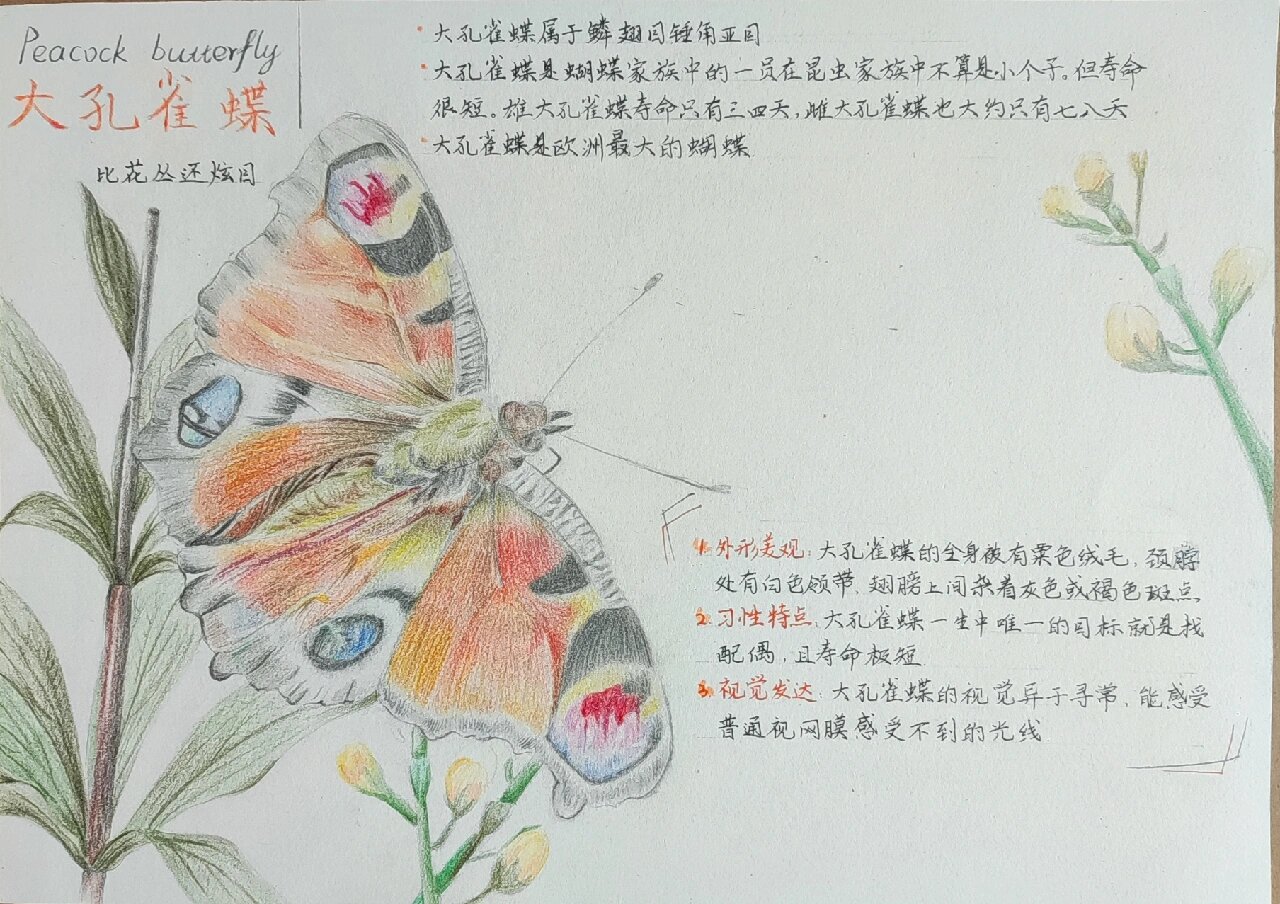 Peacock butterfly
大孔雀蝶
比花丛还炫目
· 大孔雀蝶属于鳞翅目锤角亚目
· 大孔雀蝶是蝴蝶家族中的一员在昆虫家族中不算是小个子。但寿命
很短。雄大孔雀蝶寿命只有三四天，雌大孔雀蝶也大约只有七八天
· 大孔雀蝶是欧洲最大的蝴蝶
1. 外形美观：大孔雀蝶的全身被有栗色绒毛，颈脖
处有白色领带，翅膀上间杂着灰色或褐色斑点
2. 习性特点：大孔雀蝶一生中唯一的目标就是找
配偶，且寿命极短
3. 视觉发达：大孔雀蝶的视觉异于寻常，能感受
普通视网膜感受不到的光线